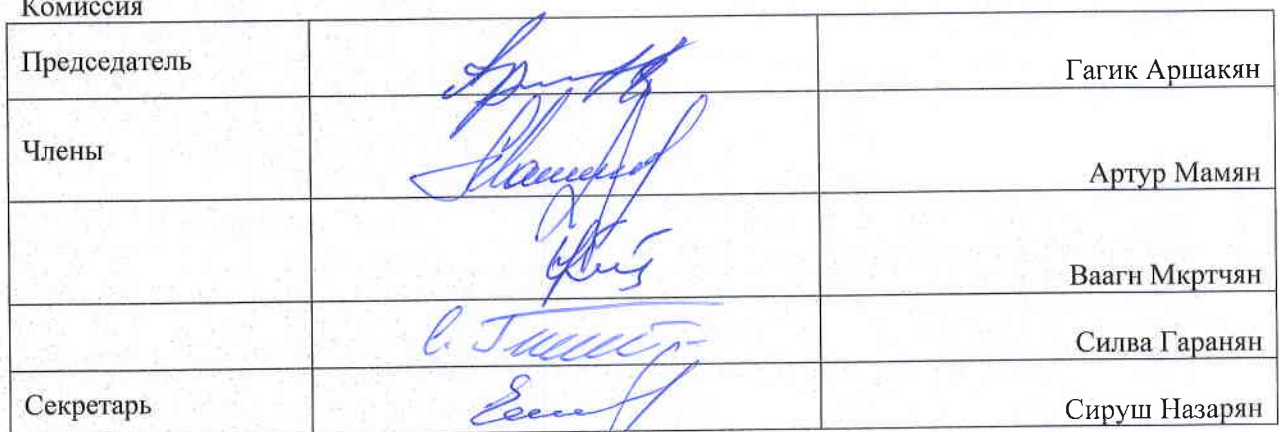 Комиссия
Председатель Гагик Аршакян
Члены Артур Мамян
Ваагн Мкртчян
Силва Гаранян
Секретарь Сируш Назарян